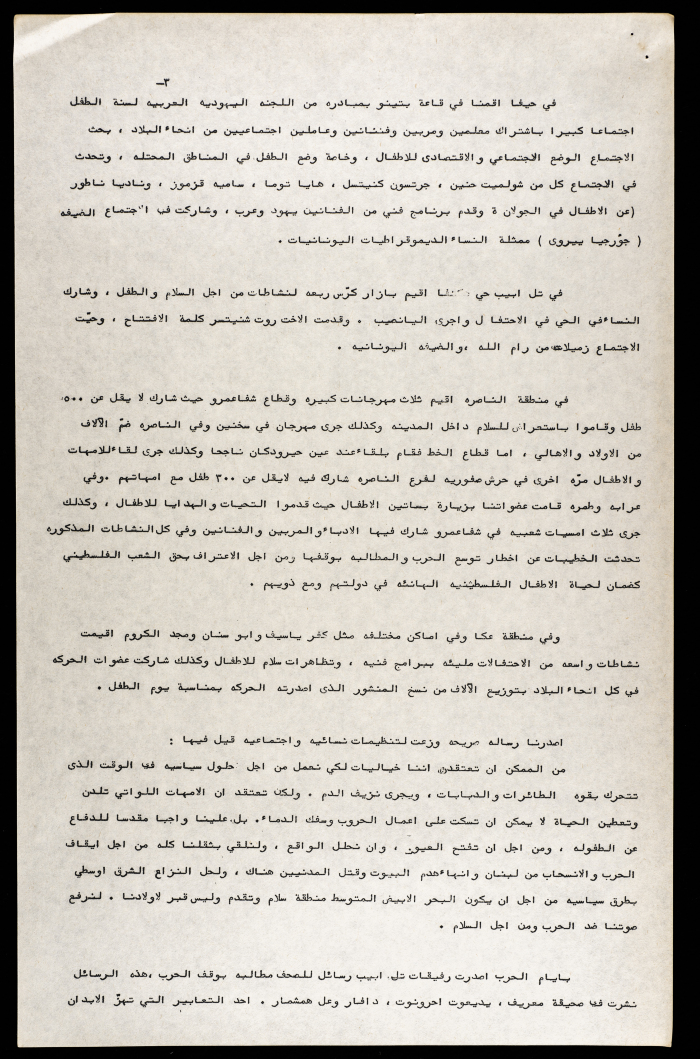 -٣
في حيفا اقمنا في قاعة بتينو بمبادره من اللجنه اليهوديه العربيه لسنة الطفل
اجتماعا كبيرا باشتراك معلمين ومربين وفنانين وعاملين اجتماعيين من انحاء البلاد ، بحث
الاجتماع الوضع الاجتماعي والاقتصادى للاطفال ، وخاصة وضع الطفل في المناطق المحتله ، وتحدث
في الاجتماع كل من شولميت حنين ، جرتسون كنيتسل ، هايا توما ، ساميه قزموز ، وناديا ناطور
(عن الاطفال في الجولان ة وقدم برنامج فني من الفنانين يهود وعرب ، وشاركت في الاجتماع الضيفه
( جوّرجيا بيروى ) ممثلة النساء الديموقراطيات اليونانيات .
في تل ابيب حي اقيم بازار كرّس ريعه لنشاطات من اجل السلام والطفل ، وشارك
النساء في الحي في الاحتفال واجرى اليانصيب . وقدمت الاخت روت شنيتسر كلمة الافتتاح ، وحيّت
الاجتماع زميلاته من رام الله ،والضيفه اليونانيه .
في منطقة الناصره اقيم ثلاث مهرجانات كبيره وقطاع شفاعمرو حيث شارك لا يقل عن ٥٠٠
طفل وقاموا باستعراض للسلام داخل المدينه وكذلك جرى مهرجان في سخنين وفي الناصره ضمّ الآلاف
من الاولاد والاهالي ، اما قطاع الخط فقام بلقاء عند عين حيرودكان ناجحا وكذلك جرى لقاء للامهات
والاطفال مرّه اخرى في حرش صفوريه لفرع الناصره شارك فيه لايقل عن ٣٠٠ طفل مع امهاتهم .وفي
عرابه وطمره قامت عضواتنا بزيارة بساتين الاطفال حيث قدموا التحيات والهدايا للاطفال ، وكذلك
جرى ثلاث امسيات شعبيه في شفاعمرو شارك فيها الادباء والمربين والفنانين وفي كل النشاطات المذكوره
تحدثت الخطيبات عن اخطار توسع الحرب والمطالبه بوقفها ومن اجل الاعتراف بحق الشعب الفلسطيني
كضمان لحياة الاطفال الفلسطينيه الهانئه في دولتهم ومع ذويهم .
وفي منطقة عكا وفي اماكن مختلفه مثل كفر ياسيف وابو سنان ومجد الكروم اقيمت
نشاطات واسعه من الاحتفالات مليئه ببرامج فنيه ، وتظاهرات سلام للاطفال وكذلك شاركت عضوات الحركه
في كل انحاء البلاد بتوزيع الآلاف من نسخ المنشور الذى اصدرته الحركه بمناسبة يوم الطفل .
اصدرنا رساله صريحه وزعت لتنظيمات نسائيه واجتماعيه قيل فيها :
من الممكن ان تعتقدن اننا خياليات لكي نعمل من اجل حلول سياسيه في الوقت الذى
تتحرك بقوه الطائرات والدبابات ، ويجرى نزيف الدم . ولكن تعتقد ان الامهات اللواتي تلدن
وتعطين الحياة لا يمكن ان تسكت على اعمال الحروب وسفك الدماء. بل علينا واجبا مقدسا للدفاع
عن الطفوله ، ومن اجل ان تفتح العيون ، وان نحلل الواقع ، ولنلقي بثقلنا كله من اجل ايقاف
الحرب والانسحاب من لبنان وانهاء هدم البيوت وقتل المدنيين هناك ، ولحل النزاع الشرق اوسطي
بطرق سياسيه من اجل ان يكون البحر الابيض المتوسط منطقة سلام وتقدم وليس قبر لاولادنا . لنرفع
صوتنا ضد الحرب ومن اجل السلام .
بايام الحرب اصدرت رفيقات تل ابيب رسائل للصحف مطالبه بوقف الحرب ،هذه الرسائل
نشرت في صحيفة معريف ، يديعوت احرونوت ، دافار وعل همشمار . احد التعابير التي تهزّ الابدان